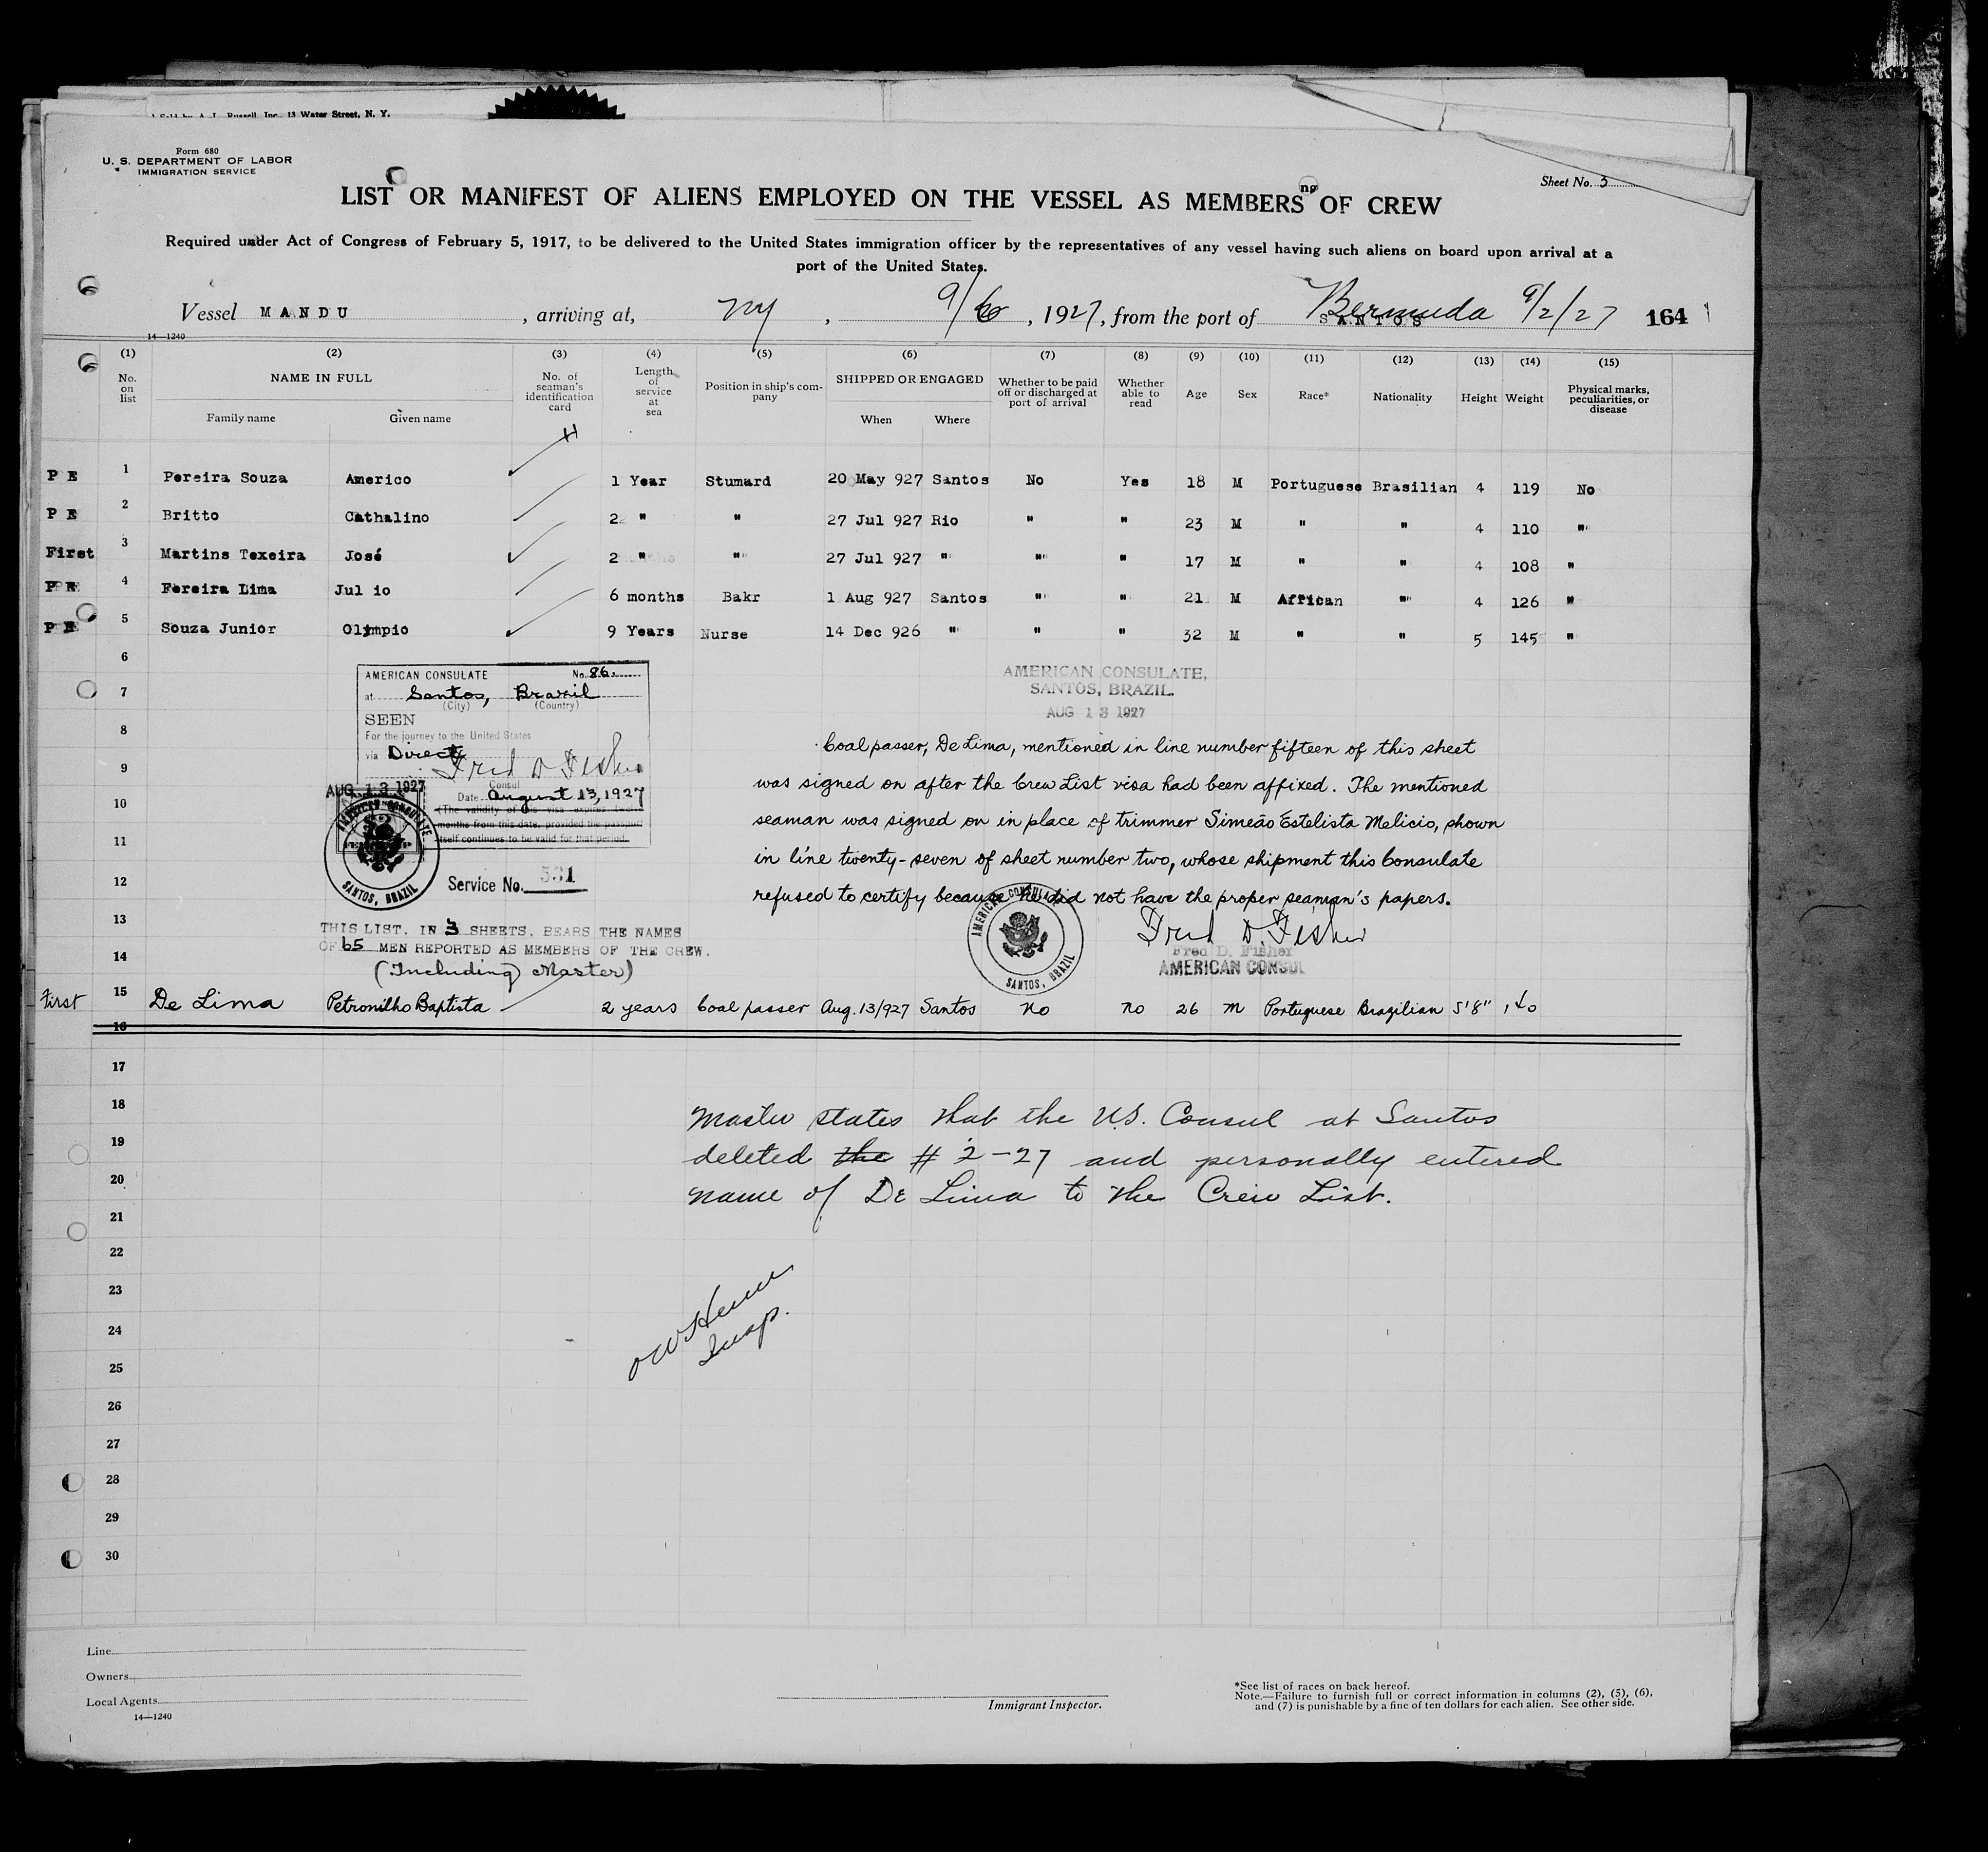 13 Water Street, N. Y.
Form 680
U. S. DEPARTMENT OF LABOR
IMMIGRATION SERVICE
Sheet No. 3
ng
LIST OR MANIFEST OF ALIENS EMPLOYED ON THE VESSEL AS MEMBERS OF CREW
Required under Act of Congress of February 5, 1917, to be delivered to the United States immigration officer by the representatives of any vessel having such aliens on board upon arrival at a
port of the United States.
Vessel MANDU, arriving at, NY, 9/6, 1927, from the port of SANTOS Bermuda 9/2/27 164
14—1240
(1) (2) (3) (4) (5) (6) (7) (8) (9) (10) (11) (12) (13) (14) (15)
No. on list NAME IN FULL Family name Given name No. of seaman's identification card Length of service at sea Position in ship's company SHIPPED OR ENGAGED When Where Whether to be paid off or discharged at port of arrival Whether able to read Age Sex Race* Nationality Height Weight Physical marks, peculiarities, or disease
P E 1 Pereira Souza Americo 1 Year Stumard 20 May 927 Santos No Yes 18 M Portuguese Brasilian 4 119 No
P E 2 Britto Cathalino 2 " " 27 Jul 927 Rio " " 23 M " " 4 110 "
First 3 Martins Texeira José 2 " " 27 Jul 927 " " " 17 M " " 4 108 "
P E 4 Fereira Lima Jul io 6 months Bakr 1 Aug 927 Santos " " 21 M African " 4 126 "
P E 5 Souza Junior Olimpio 9 Years Nurse 14 Dec 926 " " " 32 M " " 5 145 "
6
7
8
9
10
11
12
13
14
AMERICAN CONSULATE No. 86.
at Santos, Brazil
(City) (Country)
SEEN
For the journey to the United States
via Direct
Fred D Fisher
Consul
AUG 13 1927
Date August 13, 1927
(The validity of this visa expires twelve
months from this date, provided the passport
itself continues to be valid for that period.
AMERICAN CONSULATE
SANTOS, BRAZIL
Service No. 531
THIS LIST, IN 3 SHEETS, BEARS THE NAMES
OF 65 MEN REPORTED AS MEMBERS OF THE CREW.
(Including Master)
AMERICAN CONSULATE,
SANTOS, BRAZIL.
AUG 13 1927
Coal passer, De Lima, mentioned in line number fifteen of this sheet
was signed on after the Crew List visa had been affixed. The mentioned
seaman was signed on in place of trimmer Simeão Estelista Melicio, shown
in line twenty-seven of sheet number two, whose shipment this Consulate
refused to certify because he did not have the proper seaman's papers.
AMERICAN CONSULATE
SANTOS, BRAZIL
Fred D. Fisher
Fred D. Fisher
AMERICAN CONSUL
First 15 De Lima Petronilho Baptista 2 years Coal passer Aug. 13/927 Santos No no 26 M Portuguese Brazilian 5'8" 140
16
17
18
19
20
21
22
23
24
25
26
27
28
29
30
Master states that the U.S. Consul at Santos
deleted the # 2-27 and personally entered
name of De Lima to the Crew List.
Insp.
Line
Owners
Local Agents
14—1240
Immigrant Inspector.
*See list of races on back hereof.
Note.—Failure to furnish full or correct information in columns (2), (5), (6),
and (7) is punishable by a fine of ten dollars for each alien. See other side.